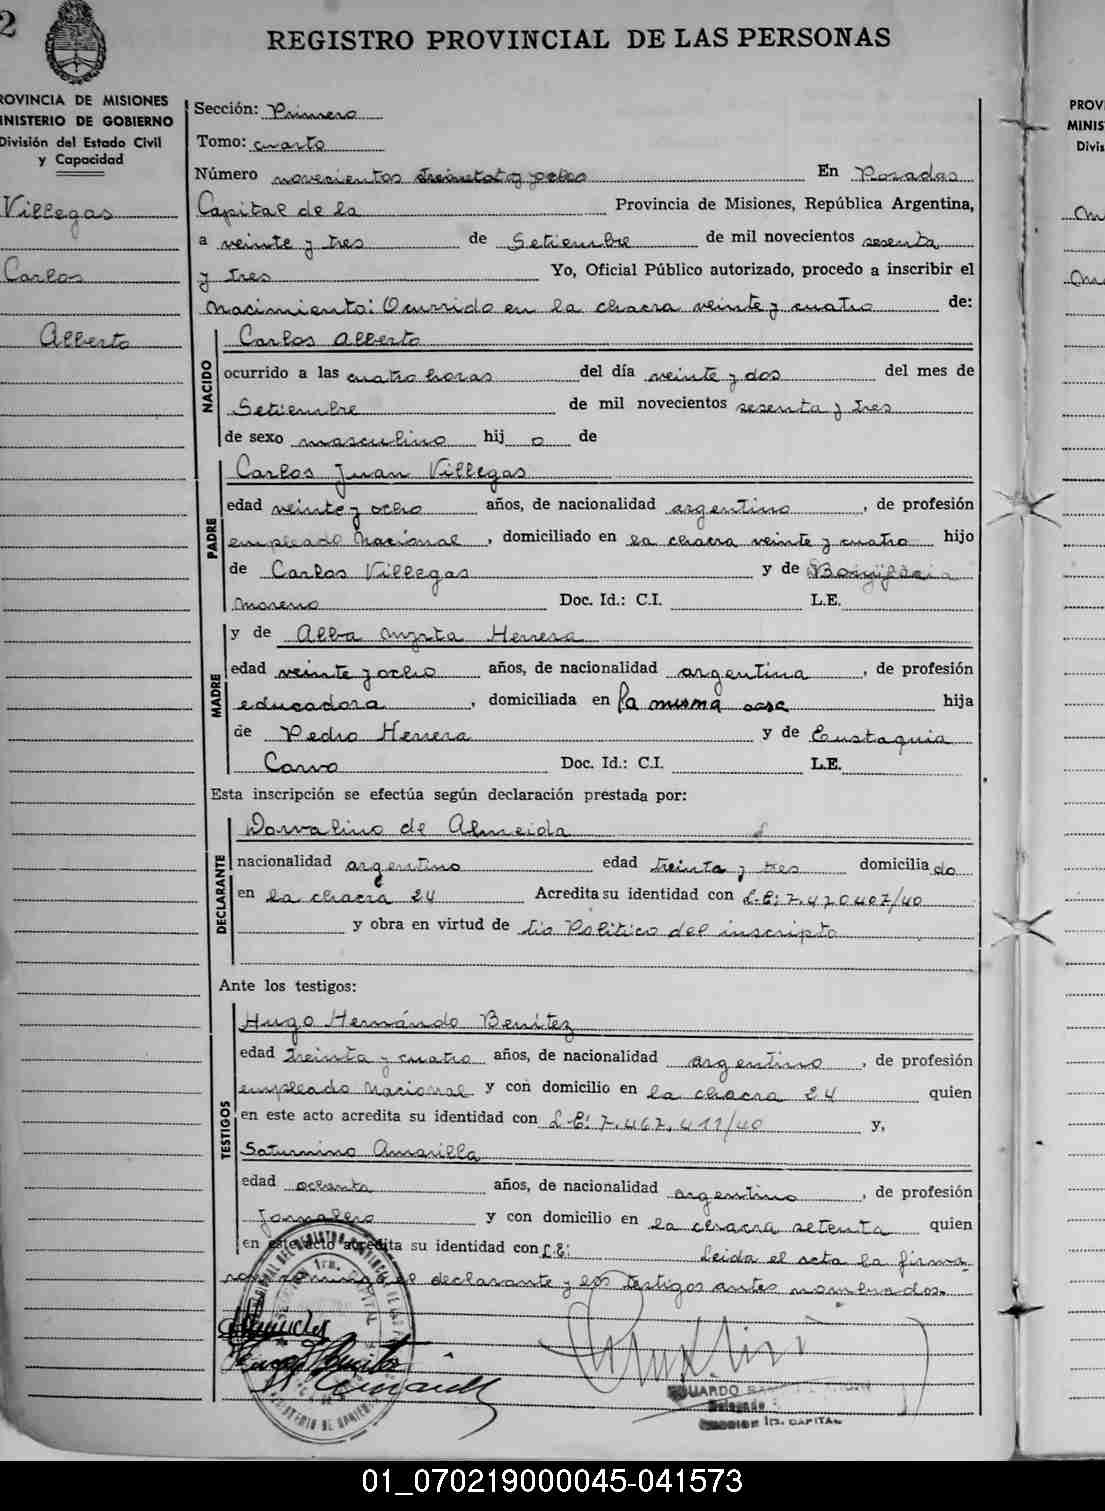 2
REGISTRO PROVINCIAL DE LAS PERSONAS
ROVINCIA DE MISIONES
INISTERIO DE GOBIERNO
División del Estado Civil
y Capacidad
Villegas
Carlos
Alberto
Sección: Primero
Tomo: cuarto
Número novecientos treintatos y ocho En Posadas
Capital de la Provincia de Misiones, República Argentina,
a veinte y tres de Setiembre de mil novecientos sesenta
y tres Yo, Oficial Público autorizado, procedo a inscribir el
Nacimiento: Ocurrido en la chacra veinte y cuatro de:
NACIDO
Carlos Alberto
ocurrido a las cuatro horas del día veinte y dos del mes de
Setiembre de mil novecientos sesenta y tres
de sexo masculino hij o de
PADRE
Carlos Juan Villegas
edad veinte y ocho años, de nacionalidad argentino, de profesión
empleado Nacional, domiciliado en la chacra veinte y cuatro hijo
de Carlos Villegas y de
Moreno Doc. Id.: C.I. L.E.
MADRE
y de Alba Myrta Herrera
edad veinte y ocho años, de nacionalidad argentina, de profesión
educadora, domiciliada en la misma casa hija
de Pedro Herrera y de Eustaquia
Carvo Doc. Id.: C.I. L.E.
Esta inscripción se efectúa según declaración prestada por:
DECLARANTE
Dorvalino de Almeida
nacionalidad argentino edad treinta y tres domicilia do
en la chacra 24 Acredita su identidad con L.E: 7.470407/40
y obra en virtud de tio Politico del inscripto
Ante los testigos:
TESTIGOS
Hugo Hernándo Benitez
edad treinta y cuatro años, de nacionalidad argentino, de profesión
empleado Nacional y con domicilio en la chacra 24 quien
en este acto acredita su identidad con L.E: 7.467.411/40 y,
Saturnino Amarilla
edad ochenta años, de nacionalidad argentino, de profesión
Jornalero y con domicilio en la chacra setenta quien
en este acto acredita su identidad con L.E: Leida el acta la firma-
ron conmigo el declarante y los testigos antes nombrados.-
EDUARDO
Delegado
SECCION 1ra. CAPITAL
PROV
MINIS
Divis
01_070219000045-041573